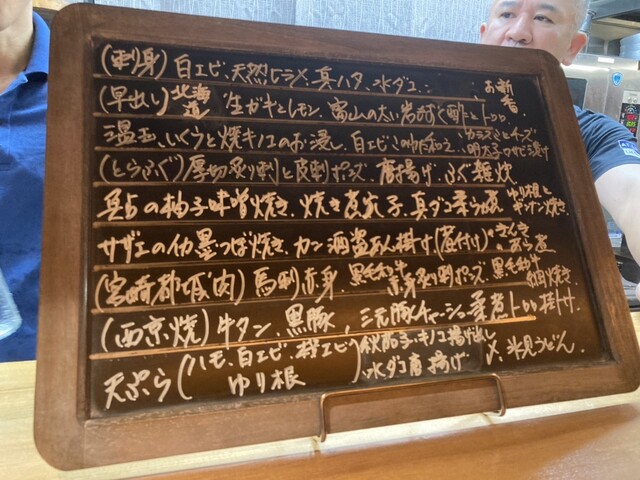 (刺身) 白エビ、天然ヒラメ、真ハタ、水ダコ、
お新香
(早出し) 北海道 生ガキとレモン、富山の太い岩もずく酢とトロロ
温玉、いくらと焼キノコのお浸し、白エビ 和え
カラスミとチーズ
明太子のワサビ漬け
(とらふぐ) 厚切炙り刺と皮刺ポン酢、唐揚げ、ふぐ雑炊
の柚子味噌焼き、焼き煮穴子、真ダコ柔らか煮
ゆり根とギンナン焼き、
サザエの つぼ焼き、カニ酒 あん掛け(煮付け)
きんき
あら煮
(宮崎都 肉) 馬刺赤身、黒毛和牛 炙り刺ポン酢、黒毛和牛 焼き、
(西京焼) 牛タン、黒豚、三元豚チャーシュー柔煮トロロ掛け
天ぷら (ハモ、白エビ、桜エビ、ゆり根) 秋茄子、キノコ揚げ出し
水ダコ唐揚げ
〆、氷見うどん、